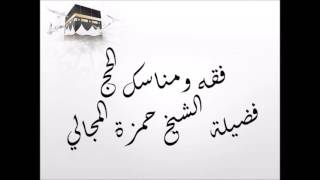 فقه ومناسك الحج
فضيلة الشيخ حمزة المجالي